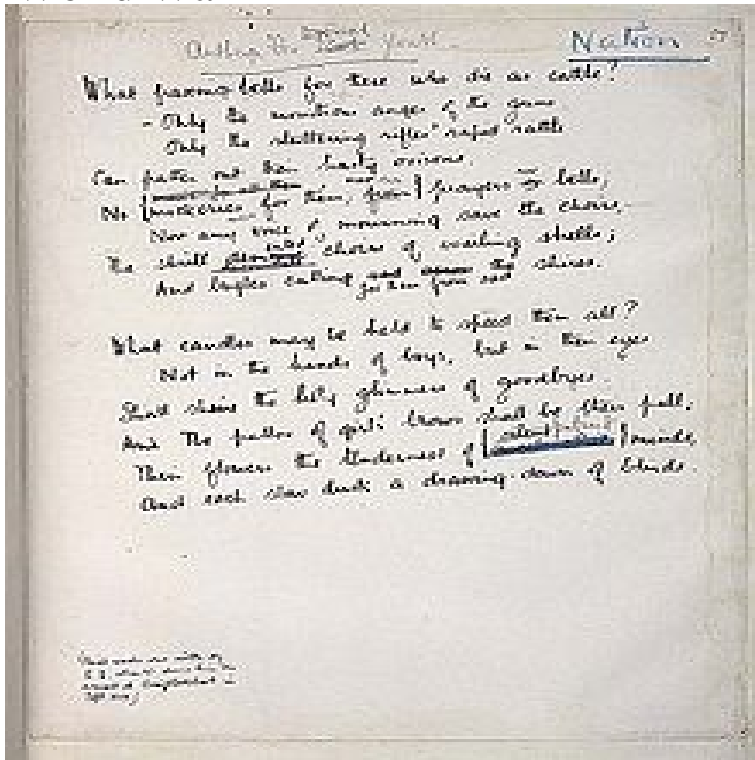 Anthem for Doomed Youth
Nation
What passing bells for these who die as cattle?
- Only the monstrous anger of the guns.
Only the stuttering rifles' rapid rattle
Can patter out their hasty orisons.
No mockeries for them, from prayers or bells,
Nor any voice of mourning save the choirs,-
The shrill choirs of wailing shells;
And bugles calling for them from sad shires.
What candles may be held to speed them all?
Not in the hands of boys, but in their eyes
Shall shine the holy glimmers of goodbyes.
And The pallor of girls' brows shall be their pall;
Their flowers the tenderness of silent minds,
And each slow dusk a drawing-down of blinds.